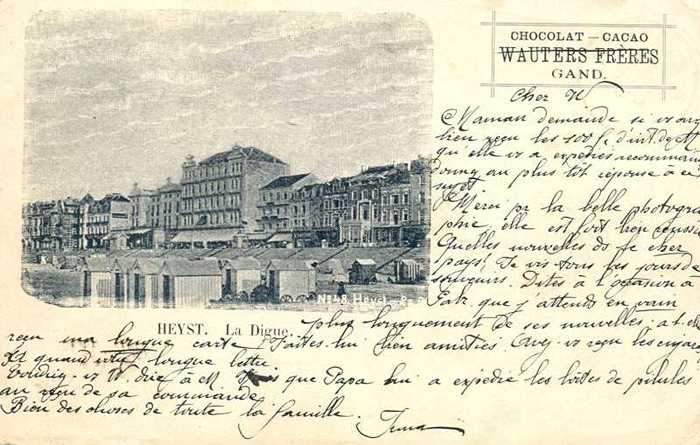 CHOCOLAT — CACAO
WAUTERS FRÈRES
GAND.
Cher
Maman demande si vous
bien reçu les 100 f. d'int.
qu'elle vs a expédiés
au plus tôt réponse à ce
sujet.
Merci pr la belle photogra
phie, elle est fort bien
Quelles nouvelles de ce cher
pays? Je vis tous les jours de
souvenirs. Dites à l'occasion à
que j'attends en vain
plus longuement de ses nouvelles. a-t-elle
No 48 Heyst
HEYST. La Digue.
reçu ma longue carte? Faites-lui bien amitiés Avez-vs reçu les
Et quand votre longue lettre
dire à M que Papa lui a expédié les boîtes de pilules
au reçu de sa commande
Bien des choses de toute la famille.
Irma